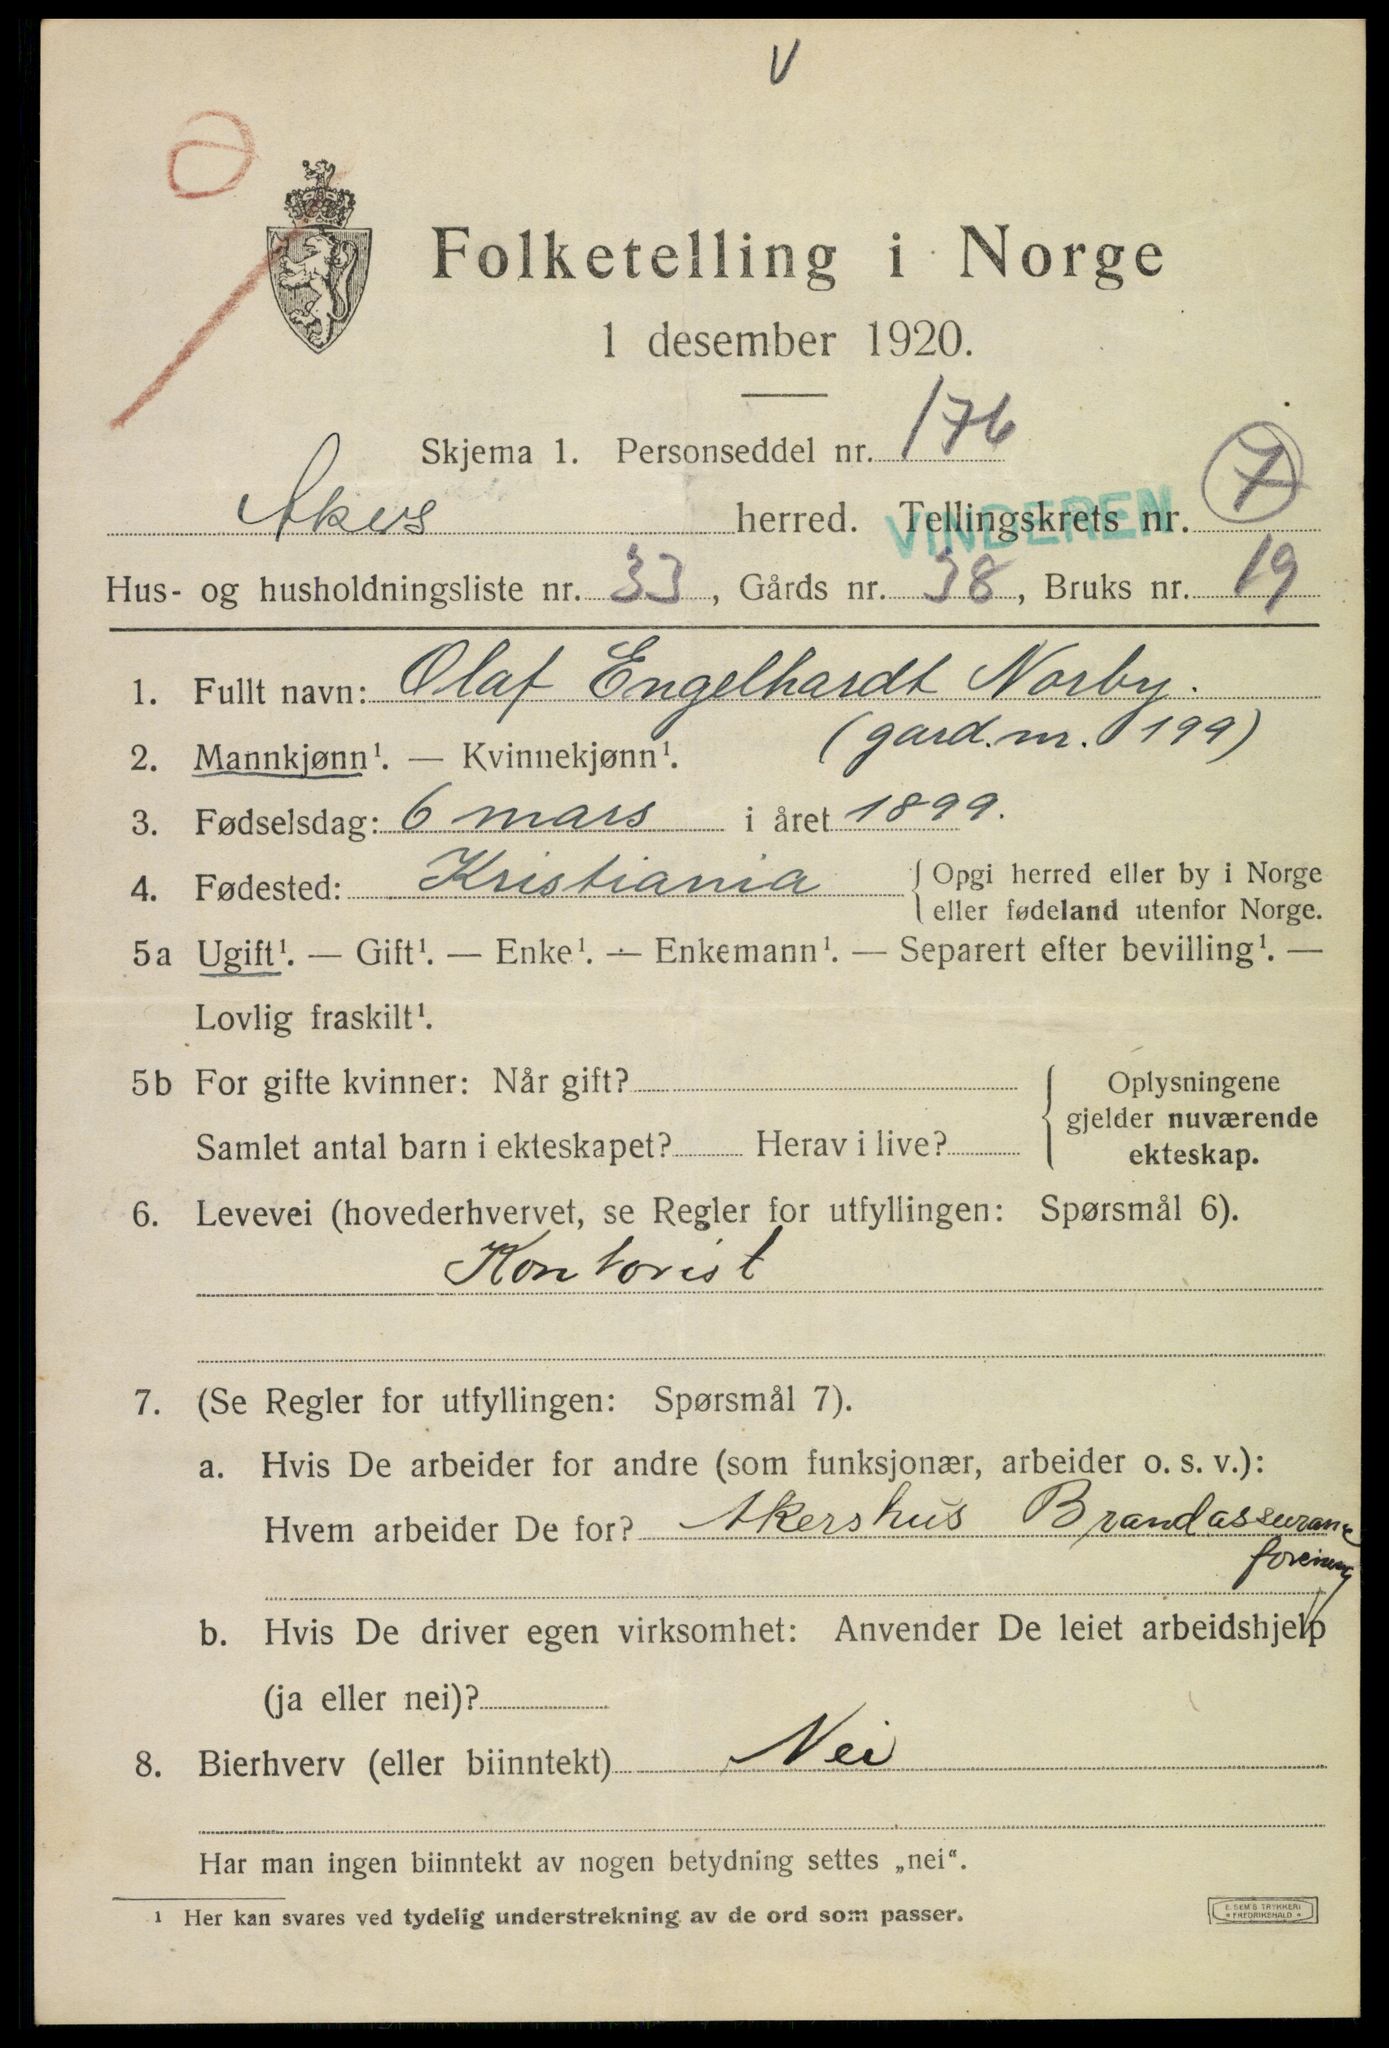 V
Folketelling i Norge
1 desember 1920.
Skjema 1. Personseddel nr. 176
Akers herred. Tellingskrets nr. 7
VINDEREN
Hus- og husholdningsliste nr. 33, Gårds nr. 38, Bruks nr. 19
1. Fullt navn: Olaf Engelhardt Norby.
(gard. nr. 199)
2. Mannkjønn¹. — Kvinnekjønn¹.
3. Fødselsdag: 6 mars i året 1899.
4. Fødested: Kristiania { Opgi herred eller by i Norge
eller fødeland utenfor Norge.
5a Ugift¹. — Gift¹. — Enke¹. — Enkemann¹. — Separert efter bevilling¹. —
Lovlig fraskilt¹.
5b For gifte kvinner: Når gift?
Samlet antal barn i ekteskapet? Herav i live?
{ Oplysningene
gjelder nuværende
ekteskap.
6. Levevei (hovederhvervet, se Regler for utfyllingen: Spørsmål 6).
Kontorist
7. (Se Regler for utfyllingen: Spørsmål 7).
a. Hvis De arbeider for andre (som funksjonær, arbeider o. s. v.):
Hvem arbeider De for? Akershus Brandassuranc
forening
b. Hvis De driver egen virksomhet: Anvender De leiet arbeidshjelp
(ja eller nei)?
8. Bierhverv (eller biinntekt) Nei
Har man ingen biinntekt av nogen betydning settes „nei“.
¹ Her kan svares ved tydelig understrekning av de ord som passer.
E. SEM'S TRYKKERI
* FREDRIKSHALD *